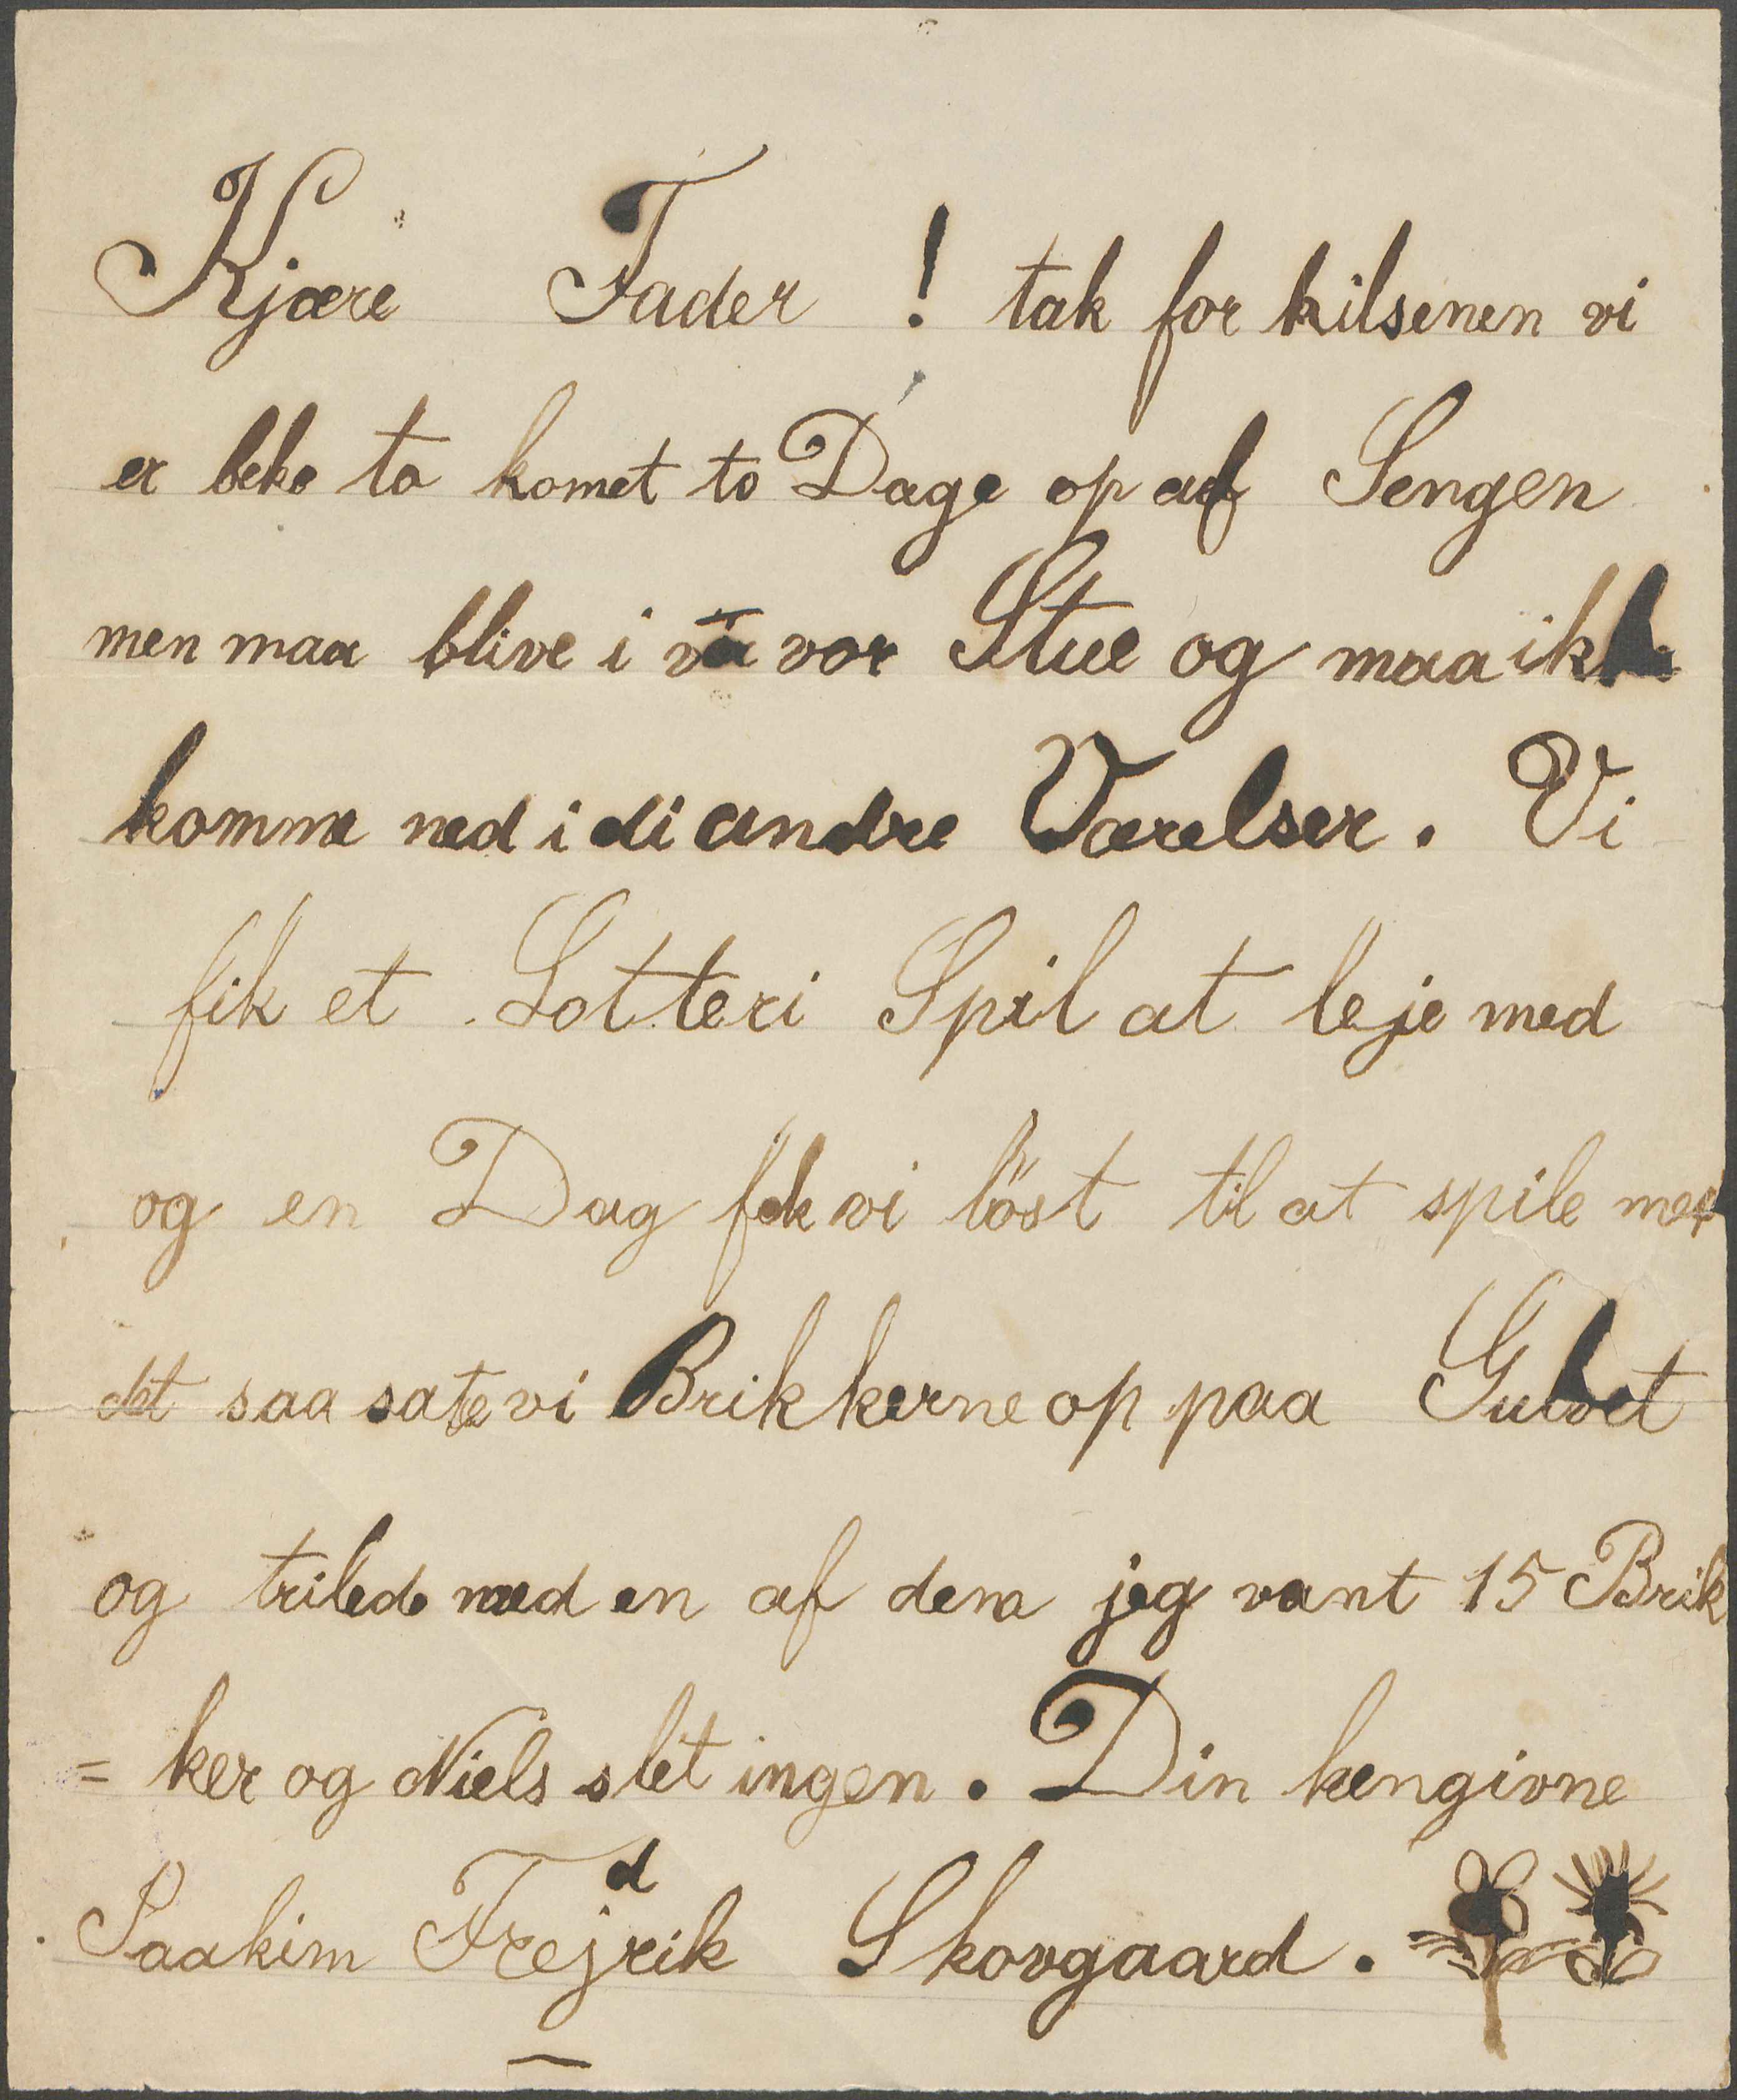 Kjære Fader ! tak for hilsenen vi
er beke to komet to Dage op af Sengen
men maa blive i vor Stue og maa ikke
komme ned i di andre Værelser. Vi
fik et Lotteri Spil at leje med
og en Dag fek vi löst til at spile med
det saa sate vi Brikkerne op paa Gulvet
og trilede med en af dem jeg vant 15 Brik
= ker og Niels slet ingen. Din hengivne
Joakim Frejdrik Skovgaard.